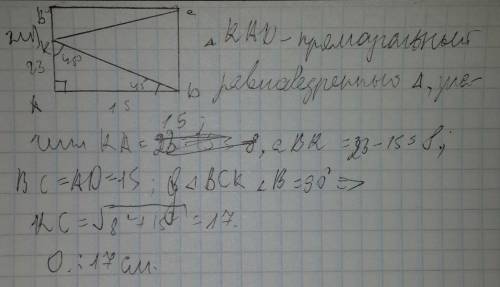 B
C
K
23
45°
45
A
15
D
Δ KAD - прямоугольный
равнобедренный Δ, зна-
чит KA = 15; BK = 23-15=8;
BC=AD=15; В Δ BCK ∠B=90° =>
KC=√8²+15²=17.
О.: 17 см.